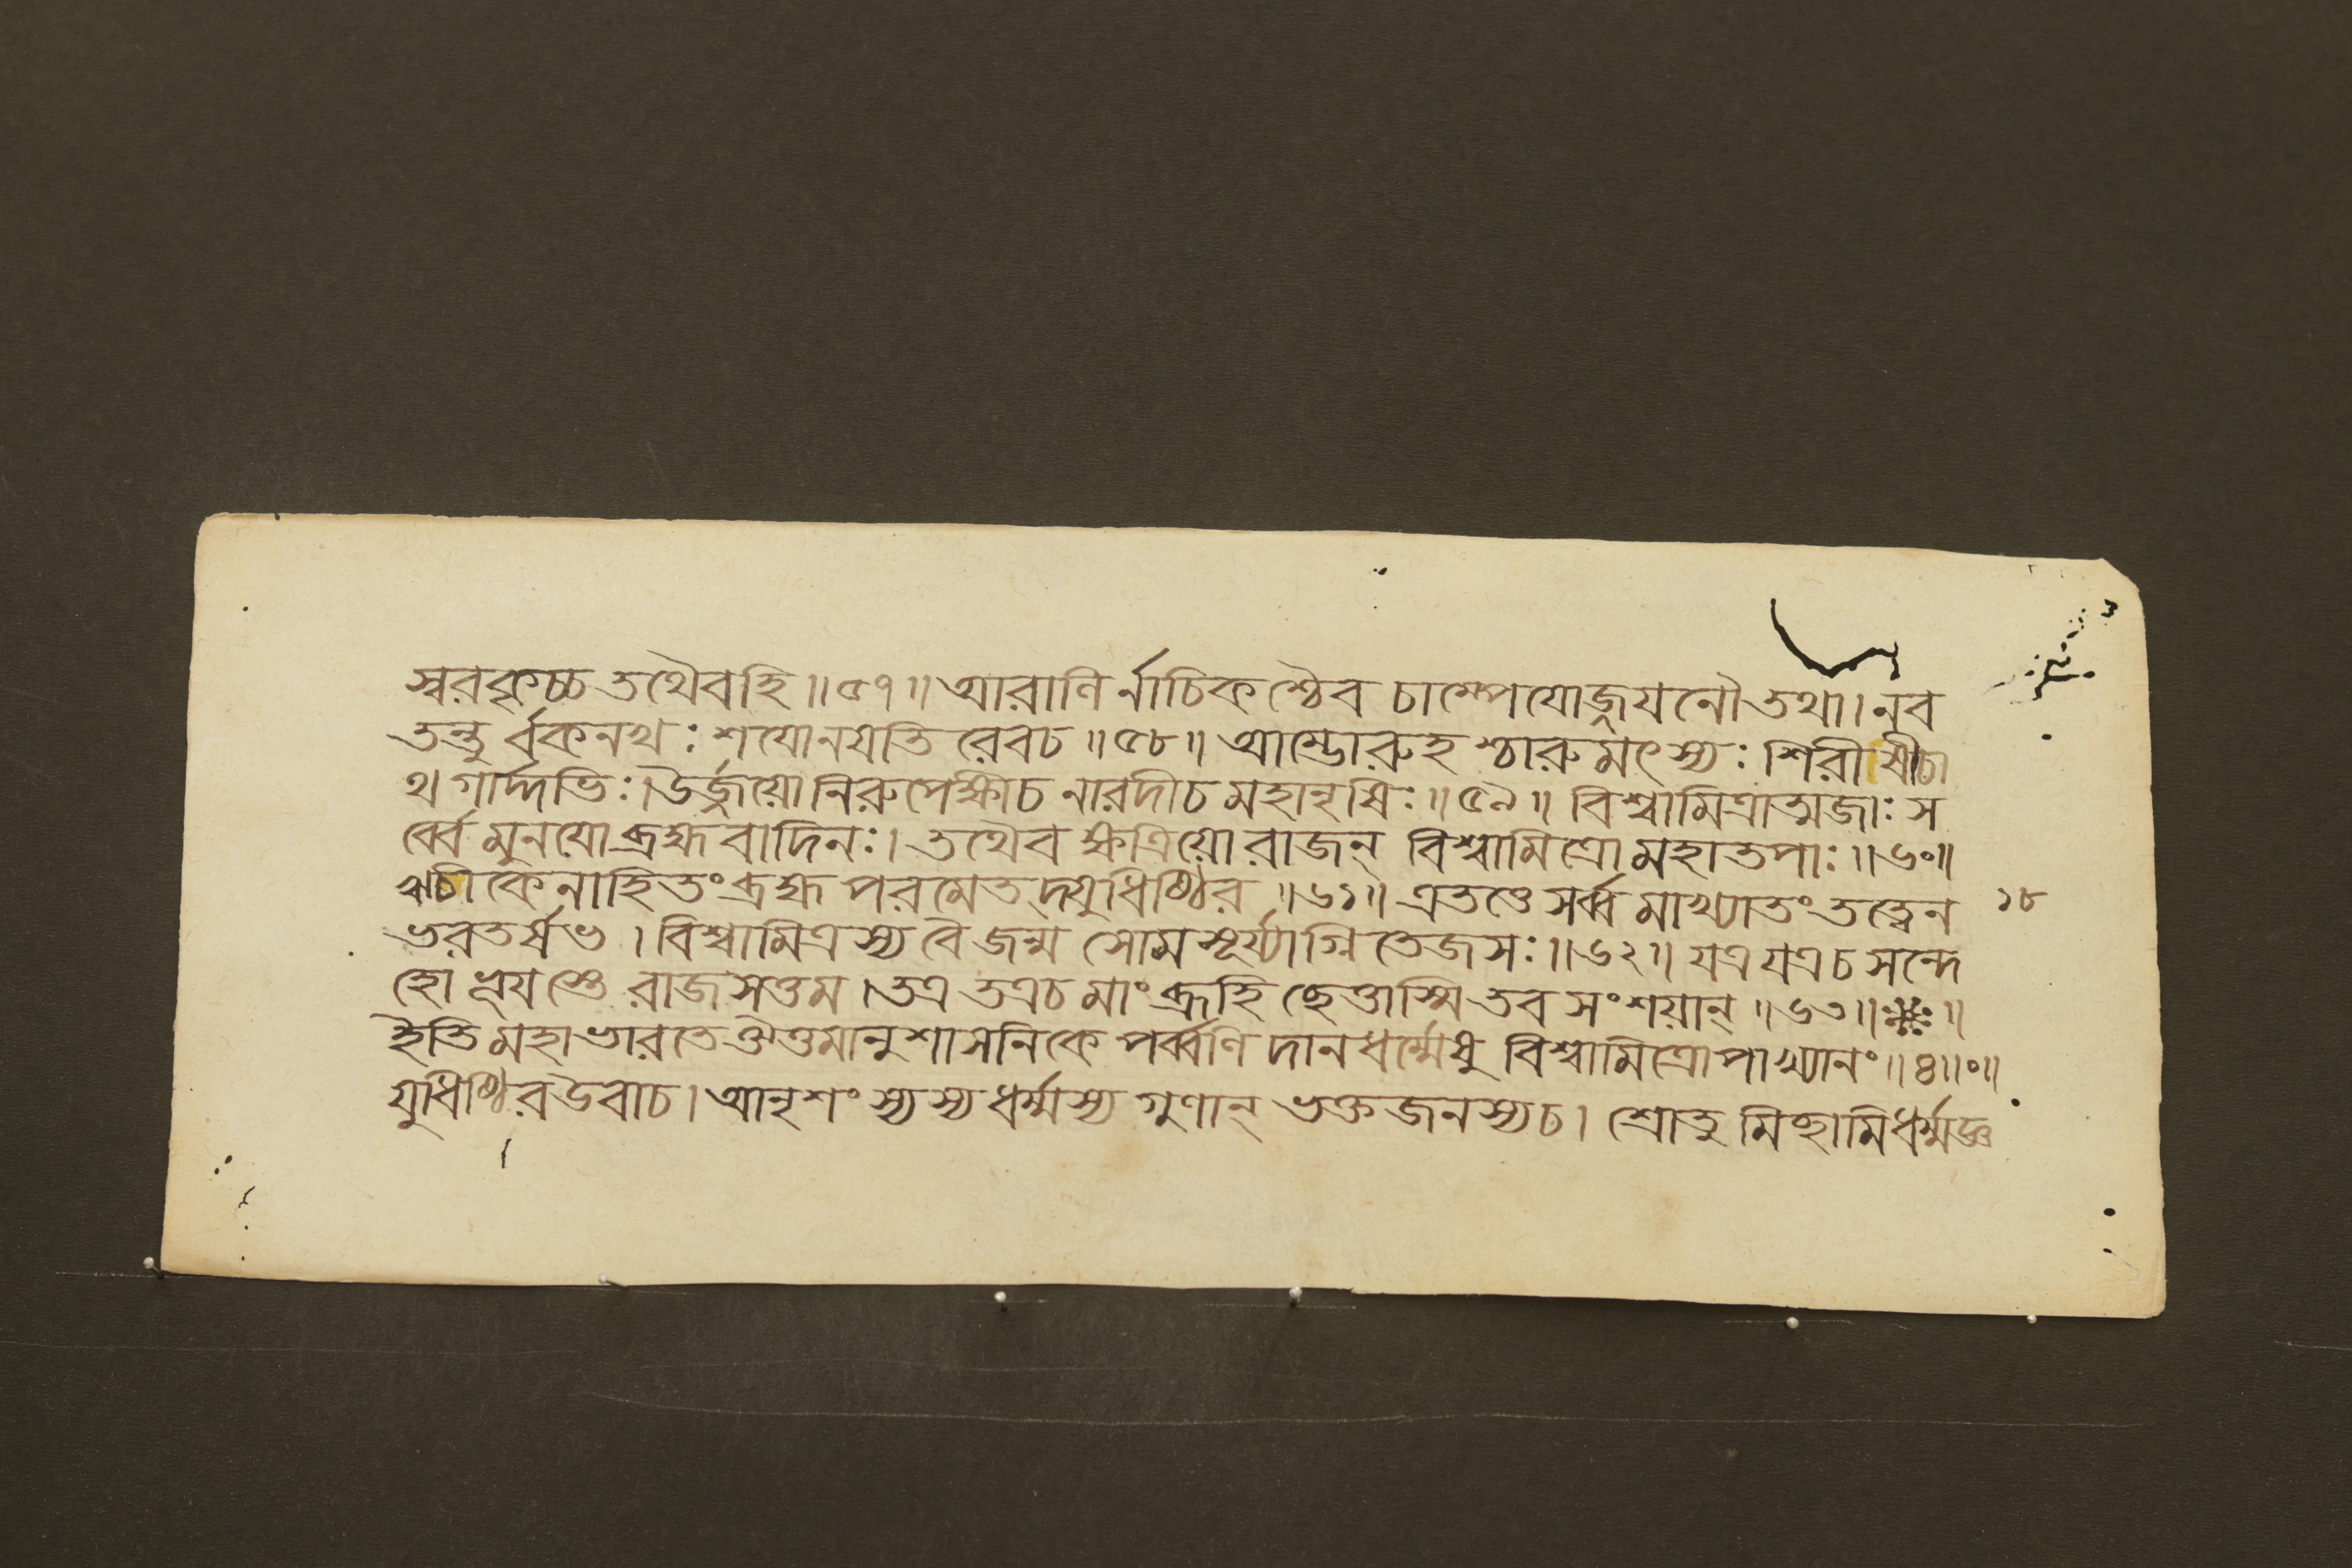 স্বরকৃচ্চ তথৈবহি ॥৫৭॥ আরাণির্নাচিকশ্চৈব চাম্পেযোজ্জযনৌতথা। নব
তন্তুর্বকনখঃ শযোনযতিরেবচ ॥৫৮॥ আম্ভোরুহশ্চারুমৎস্যঃ শিরীষীচা
থগার্দ্দভিঃ। উর্জ্জয়োনিরুপেক্ষীচ নারদীচমহানৃষিঃ ॥৫৯॥ বিশ্বামিত্রাত্মজাঃ স
র্ব্বেমুনযোব্রহ্মবাদিনঃ। তথৈবক্ষত্রিয়োরাজন্ বিশ্বামিত্রোমহাতপাঃ ॥৬০॥
ঋচীকেনাহিতংব্রহ্মপরমেতদ্যুধিষ্ঠির ॥৬১॥ এতত্তেসর্ব্বমাখ্যাতং তত্ত্বেন
১৮
ভরতর্ষভ। বিশ্বামিত্রস্যবৈজন্ম সোমসূর্য্যাগ্নিতেজসঃ ॥৬২॥ যত্রযত্রচসন্দে
হোভূযস্তেরাজসত্তম। তত্রতত্রচমাংব্রূহি ছেত্তাস্মিতবসংশয়ান্ ॥৬৩॥
ইতিমহাভারতেঔত্তমানুশাসনিকেপর্ব্বণি দানধর্ম্মেষু বিশ্বামিত্রোপাখ্যানং ॥৪॥०॥
যুধিষ্ঠিরউবাচ। আনৃশংস্যস্যধর্ম্মস্য গুণান্ ভক্তজনস্যচ। শ্রোতুমিচ্ছামিধর্ম্মজ্ঞ